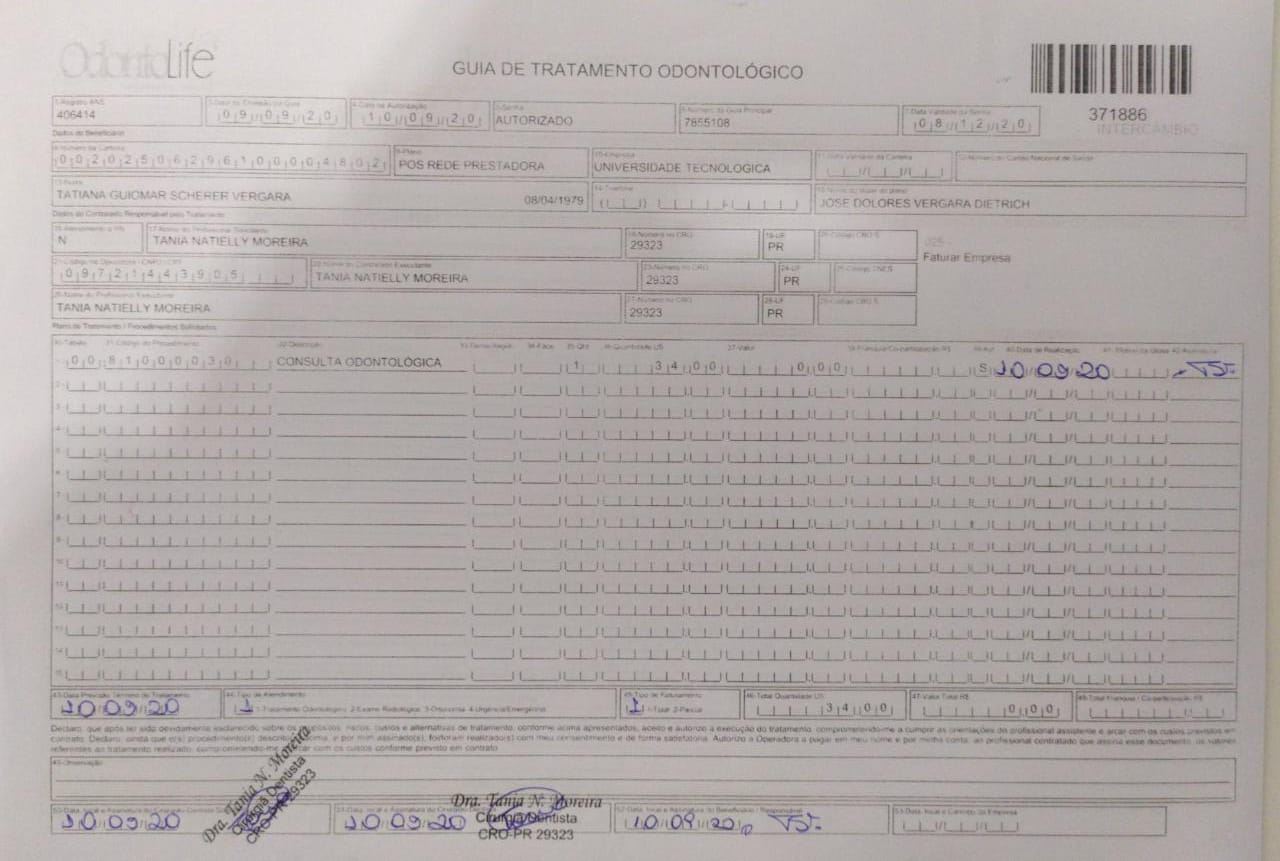 OdontoLife
GUIA DE TRATAMENTO ODONTOLÓGICO
371886
INTERCÂMBIO
1-Registro ANS
406414
3-Data de Emissão da Guia
09/09/20
4-Data de Autorização
10/09/20
5-Senha
AUTORIZADO
6-Número da Guia Principal
7855108
7-Data Validade da Senha
08/12/20
Dados do Beneficiário
8-Número da Carteira
00202506296100004802
9-Plano
POS REDE PRESTADORA
10-Empresa
UNIVERSIDADE TECNOLOGICA
11-Data Validade da Carteira
12-Número do Cartão Nacional de Saúde
13-Nome
TATIANA GUIOMAR SCHERER VERGARA 08/04/1979
14-Telefone
15-Nome do titular do plano
JOSE DOLORES VERGARA DIETRICH
Dados do Contratado Responsável pelo Tratamento
16-Atendimento a RN
N
17-Nome do Profissional Solicitante
TANIA NATIELLY MOREIRA
18-Número no CRO
29323
19-UF
PR
20-Código CBO S
025 -
Faturar Empresa
21-Código na Operadora / CNPJ / CPF
09721443905
22-Nome do Contratado Executante
TANIA NATIELLY MOREIRA
23-Número no CRO
29323
24-UF
PR
25-Código CNES
26-Nome do Profissional Executante
TANIA NATIELLY MOREIRA
27-Número no CRO
29323
28-UF
PR
29-Código CBO S
Plano de Tratamento / Procedimentos Solicitados
30-Tabela 31-Código do Procedimento 32-Descrição 33-Dente/Região 34-Face 35-Qtd 36-Quantidade US 37-Valor 38-Franquia/Co-participação R$ 39-Aut 40-Data de Realização 41-Motivo da Glosa 42-Assinatura
00 81000030 CONSULTA ODONTOLÓGICA 1 34 00 0 00 S 10 09 20
2-
3-
4-
5-
6-
7-
8-
9-
10-
11-
12-
13-
14-
15-
43-Data Previsão Término do Tratamento
10 09 20
44-Tipo de Atendimento
1 1-Tratamento Odontológico 2-Exame Radiológico 3-Ortodontia 4-Urgência/Emergência
45-Tipo de Faturamento
1 1-Total 2-Parcial
46-Total Quantidade US
34 00
47-Valor Total R$
0 00
48-Total Franquia / Co-participação R$
Declaro, que após ter sido devidamente esclarecido sobre os propósitos, riscos, custos e alternativas de tratamento, conforme acima apresentados, aceito e autorizo a execução do tratamento, comprometendo-me a cumprir as orientações do profissional assistente e arcar com os custos previstos em
contrato. Declaro, ainda que o(s) procedimento(s) descrito(s) acima, e por mim assinado(s), foi/foram realizado(s) com meu consentimento e de forma satisfatória. Autorizo a Operadora a pagar em meu nome e por minha conta, ao profissional contratado que assina esse documento, os valores
referentes ao tratamento realizado, comprometendo-me a arcar com os custos conforme previsto em contrato
49-Observação
50-Data, local e Assinatura do Cirurgião Dentista
10 09 20
Dra. Tania N. Moreira
Cirurgiã Dentista
CRO-PR 29323
51-Data, local e Assinatura do Cirurgião Dentista
10 09 20
Dra. Tania N. Moreira
Cirurgiã Dentista
CRO-PR 29323
52-Data, local e Assinatura do Beneficiário / Responsável
10 09 20
53-Data, local e Carimbo da Empresa